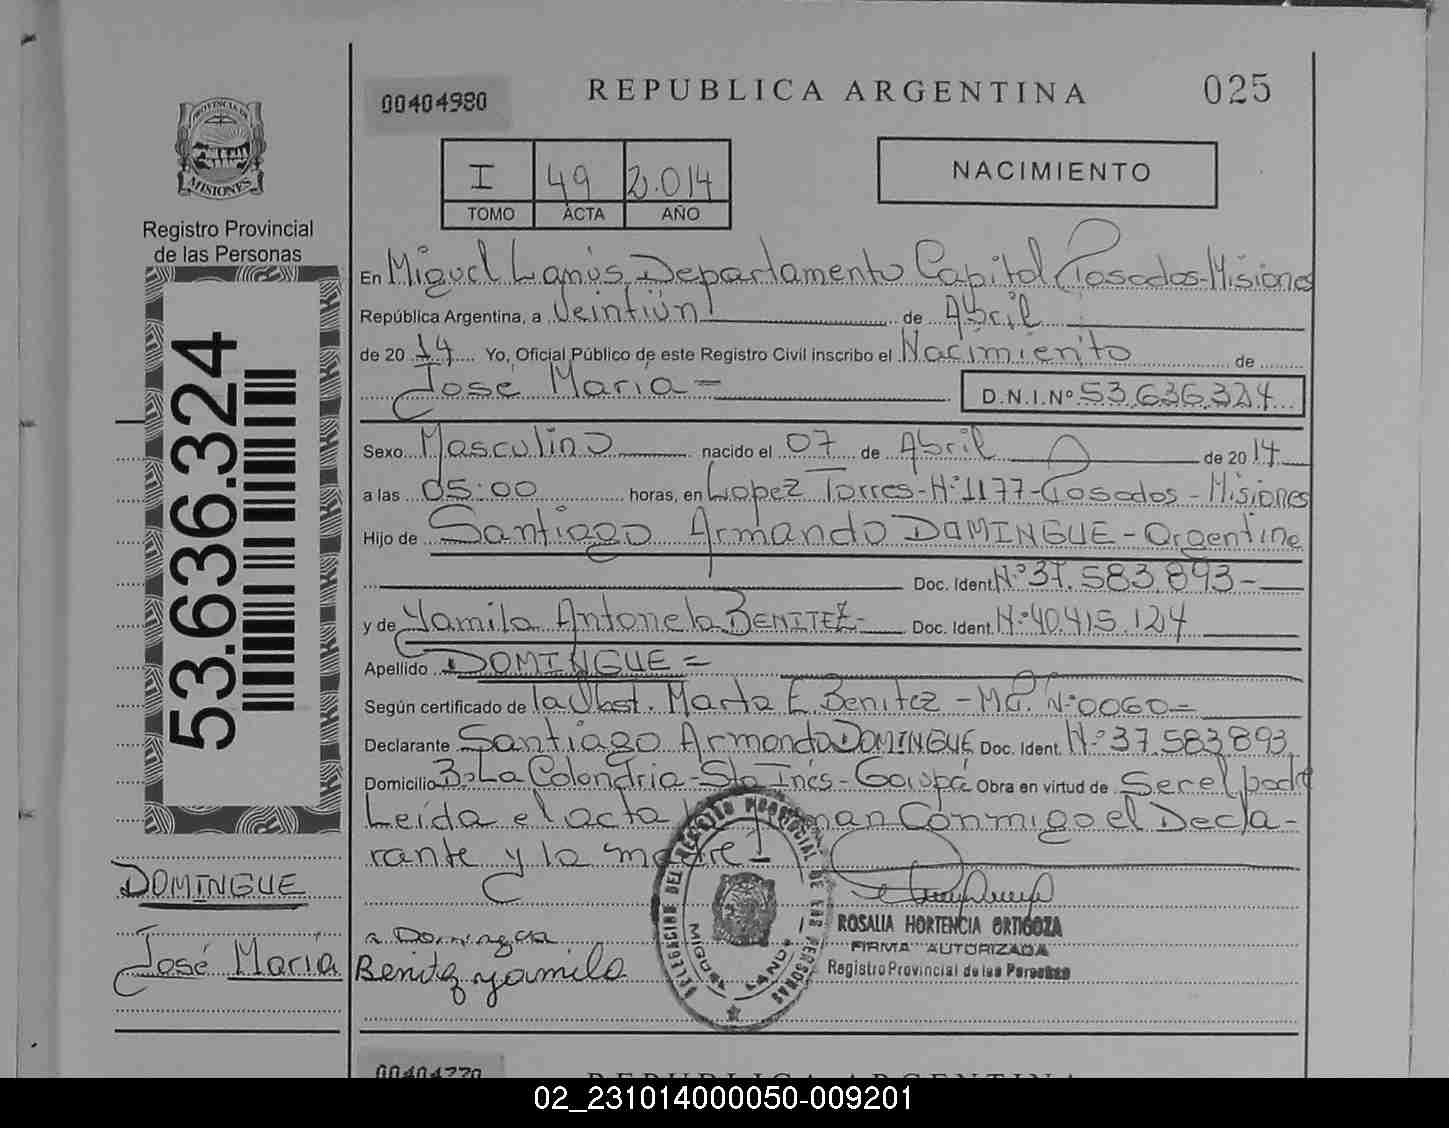 00404980
REPUBLICA ARGENTINA
025
PROVINCIA DE
MISIONES
Registro Provincial
de las Personas
I 49 2.014
TOMO ACTA AÑO
NACIMIENTO
En Miguel Lanús Departamento Capital Posadas-Misiones
República Argentina, a Veintiún de Abril
de 20 14 Yo, Oficial Público de este Registro Civil inscribo el Nacimiento de
José María =
D.N.I.Nº 53.636.324
53.636.324
Sexo Masculino nacido el 07 de Abril de 20 14
a las 05:00 horas, en Lopez Torres-Nº1177-Posadas-Misiones
Hijo de Santiago Armando DOMINGUE - Argentina
Doc. Ident. Nº37.583.893-
y de Yamila Antonela BENITEZ- Doc. Ident. Nº40.415.124
Apellido DOMINGUE =
Según certificado de la Obst. Marta E. Benitez - MP. Nº0060=
Declarante Santiago Armando DOMINGUE Doc. Ident. Nº37.583893
Domicilio Bº La Colondria-Sta Inés-Garupá Obra en virtud de Ser el padre
Leída el acta man Conmigo el Decla-
rante y la madre!
DOMINGUE
José María
Benitez yamila
DELEGACION DEL REGISTRO PROVINCIAL DE LAS PERSONAS
MIGUEL LANUS
ROSALIA HORTENCIA ORTIGOZA
FIRMA AUTORIZADA
Registro Provincial de las Personas
00404770
REPUBLICA ARGENTINA
02_231014000050-009201